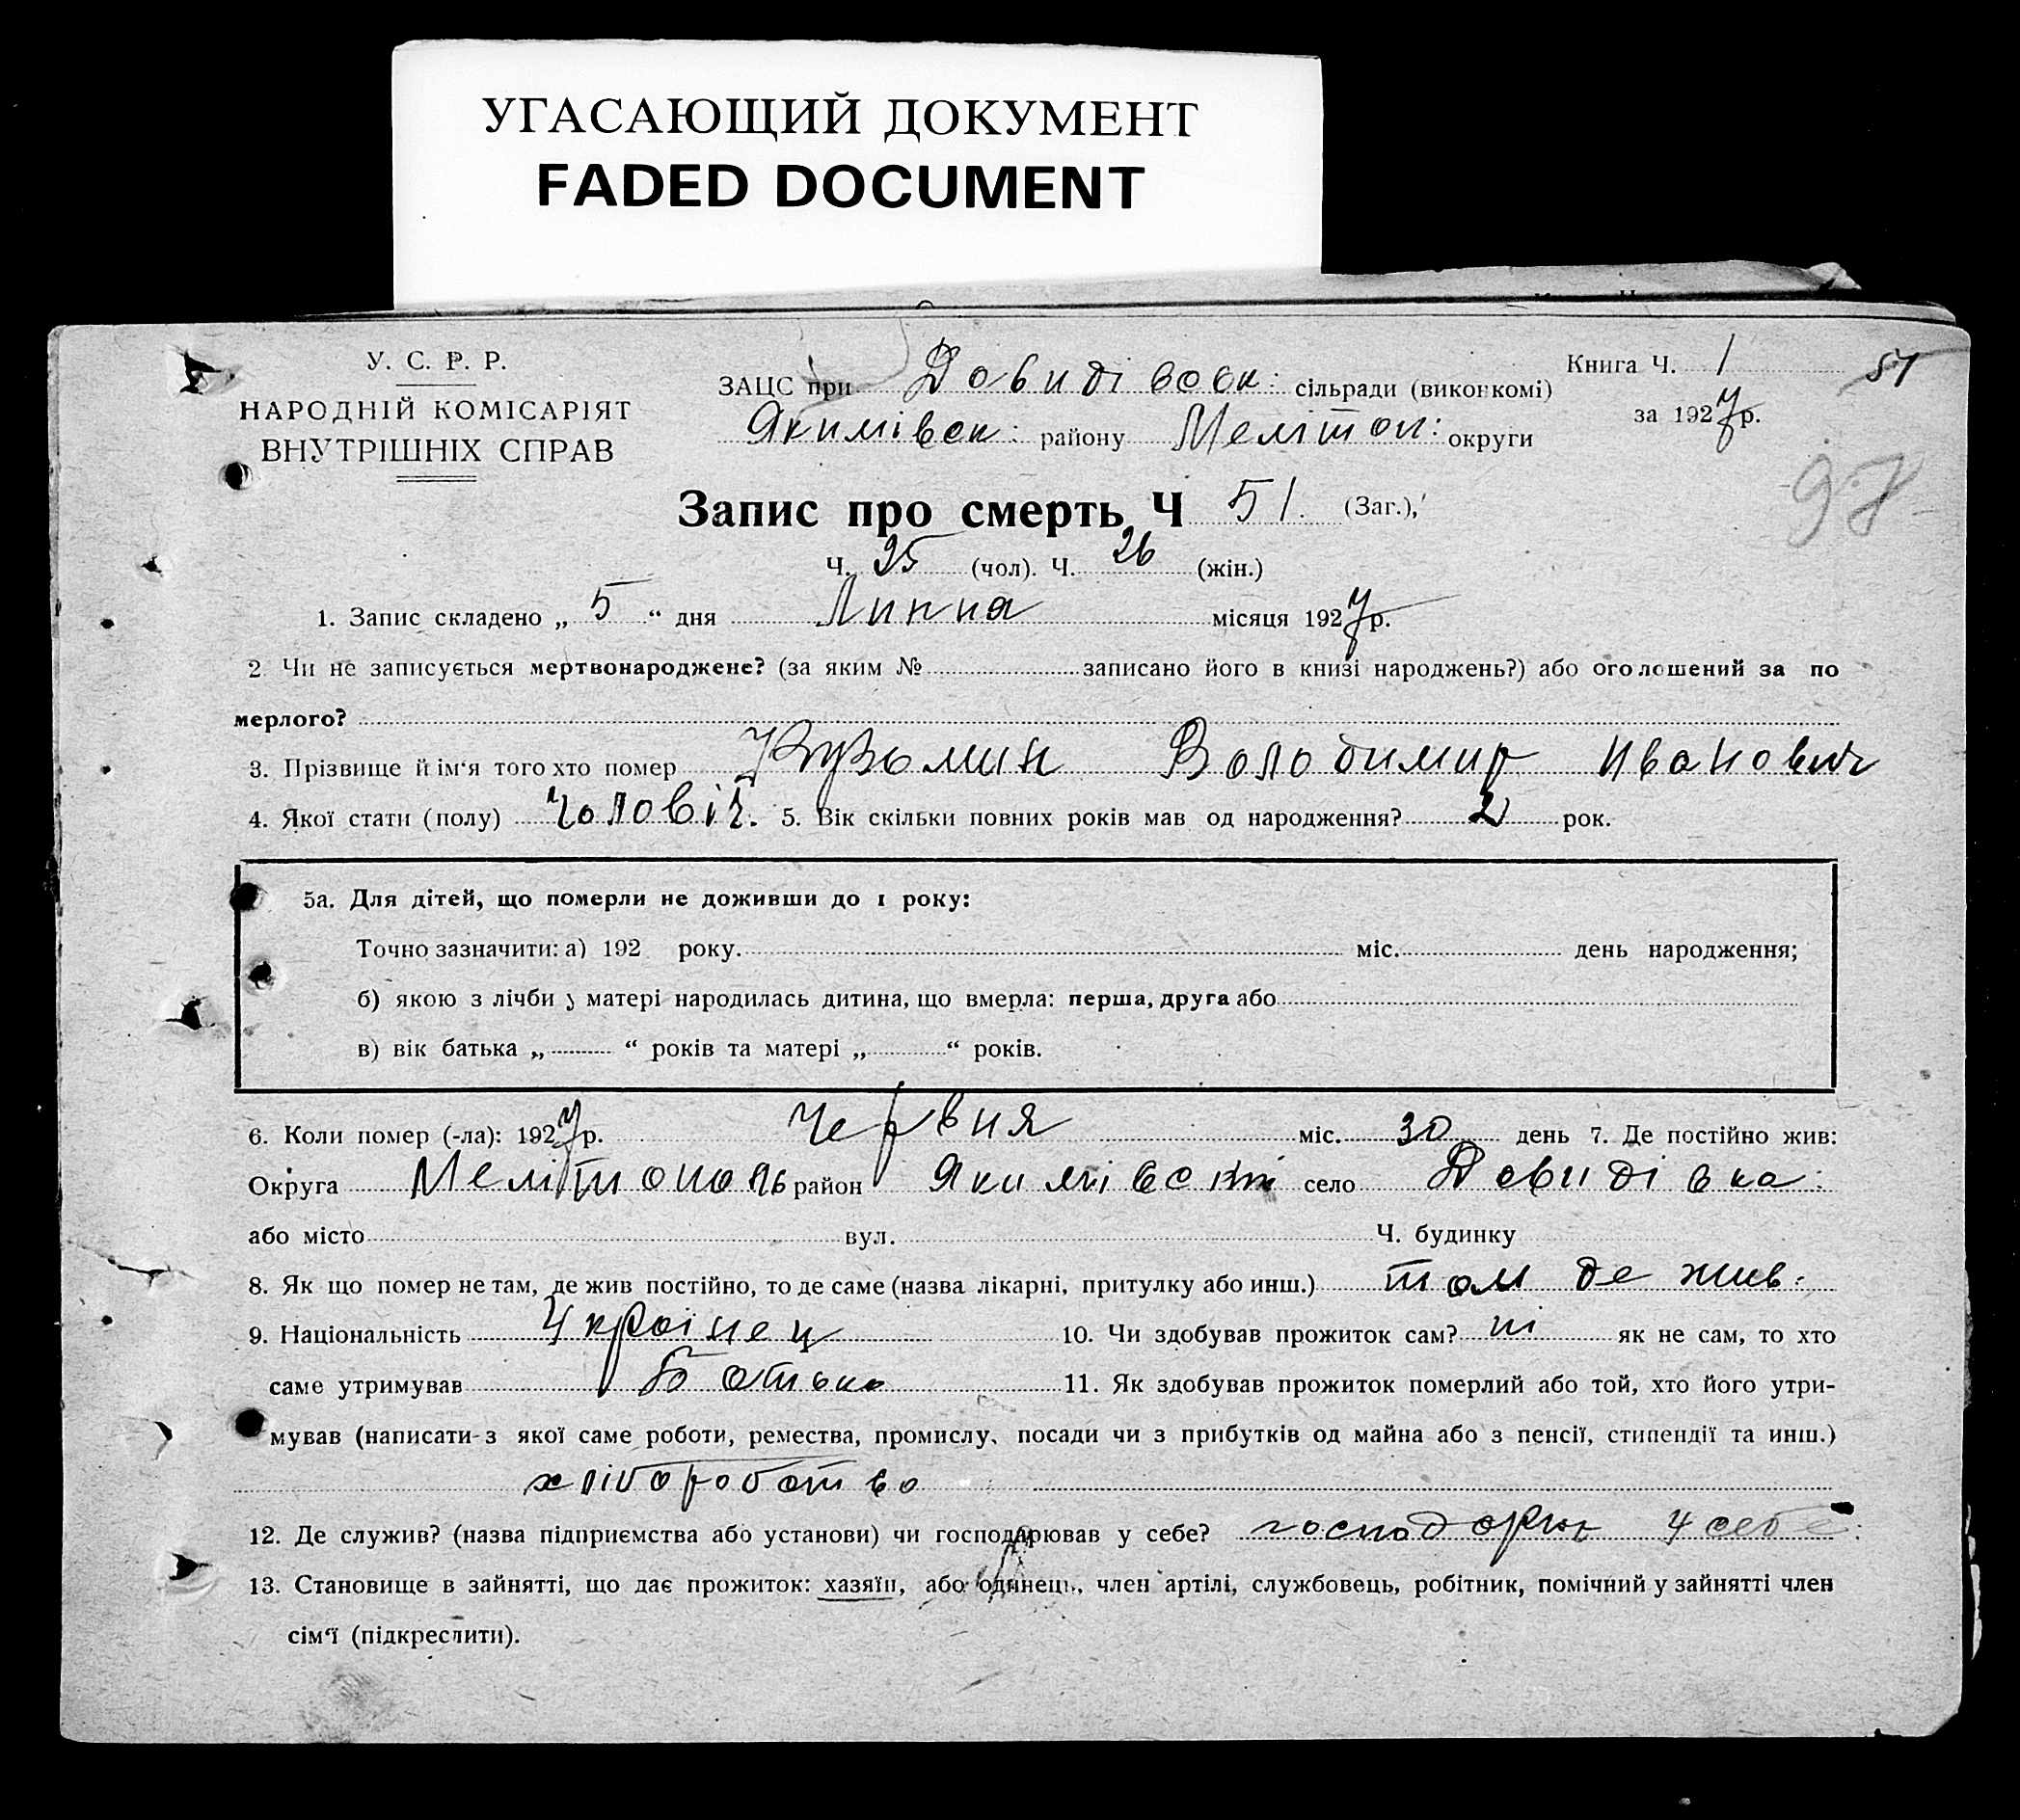 УГАСАЮЩИЙ ДОКУМЕНТ
FADED DOCUMENT
У. С. Р. Р.
НАРОДНІЙ КОМІСАРІЯТ
ВНУТРІШНІХ СПРАВ
ЗАЦС при Давидівськ: сільради (виконкомі)
Якимівськ: району Мелітоп: округи
Книга Ч. 1
за 1927 р.
51
97
Запис про смерть Ч 51. (Заг.),
Ч. 25 (чол). Ч. 26 (жін.)
1. Запис складено „ 5 “ дня Липня місяця 1927 р.
2 Чи не записується мертвонароджене? (за яким № записано його в книзі народжень?) або оголошений за по
мерлого?
3. Прізвище й ім‘я того хто помер Кузьмин Володимир Иванович
4. Якої стати (полу) чоловіч. 5. Вік скільки повних років мав од народження? 2 рок.
5а. Для дітей, що померли не доживши до 1 року:
Точно зазначити: а) 192 року. міс. день народження;
б) якою з лічби у матері народилась дитина, що вмерла: перша, друга або
в) вік батька „ “ років та матері „ “ років.
6. Коли помер (-ла): 1927 р. Червня міс. 30 день 7. Де постійно жив:
Округа Мелітополь район Якимівськи село Давидівка:
або місто вул. Ч. будинку
8. Як що помер не там, де жив постійно, то де саме (назва лікарні, притулку або инш.) там де жив:
9. Національність Українец 10. Чи здобував прожиток сам? ні як не сам, то хто
саме утримував Батько 11. Як здобував прожиток померлий або той, хто його утри-
мував (написати з якої саме роботи, ремества, промислу, посади чи з прибутків од майна або з пенсії, стипендії та инш.)
хліборобство
12. Де служив? (назва підприємства або установи) чи господарював у себе? господарює у себе:
13. Становище в зайнятті, що дає прожиток: хазяїн, або одинець, член артілі, службовець, робітник, помічний у зайнятті член
сім‘ї (підкреслити).